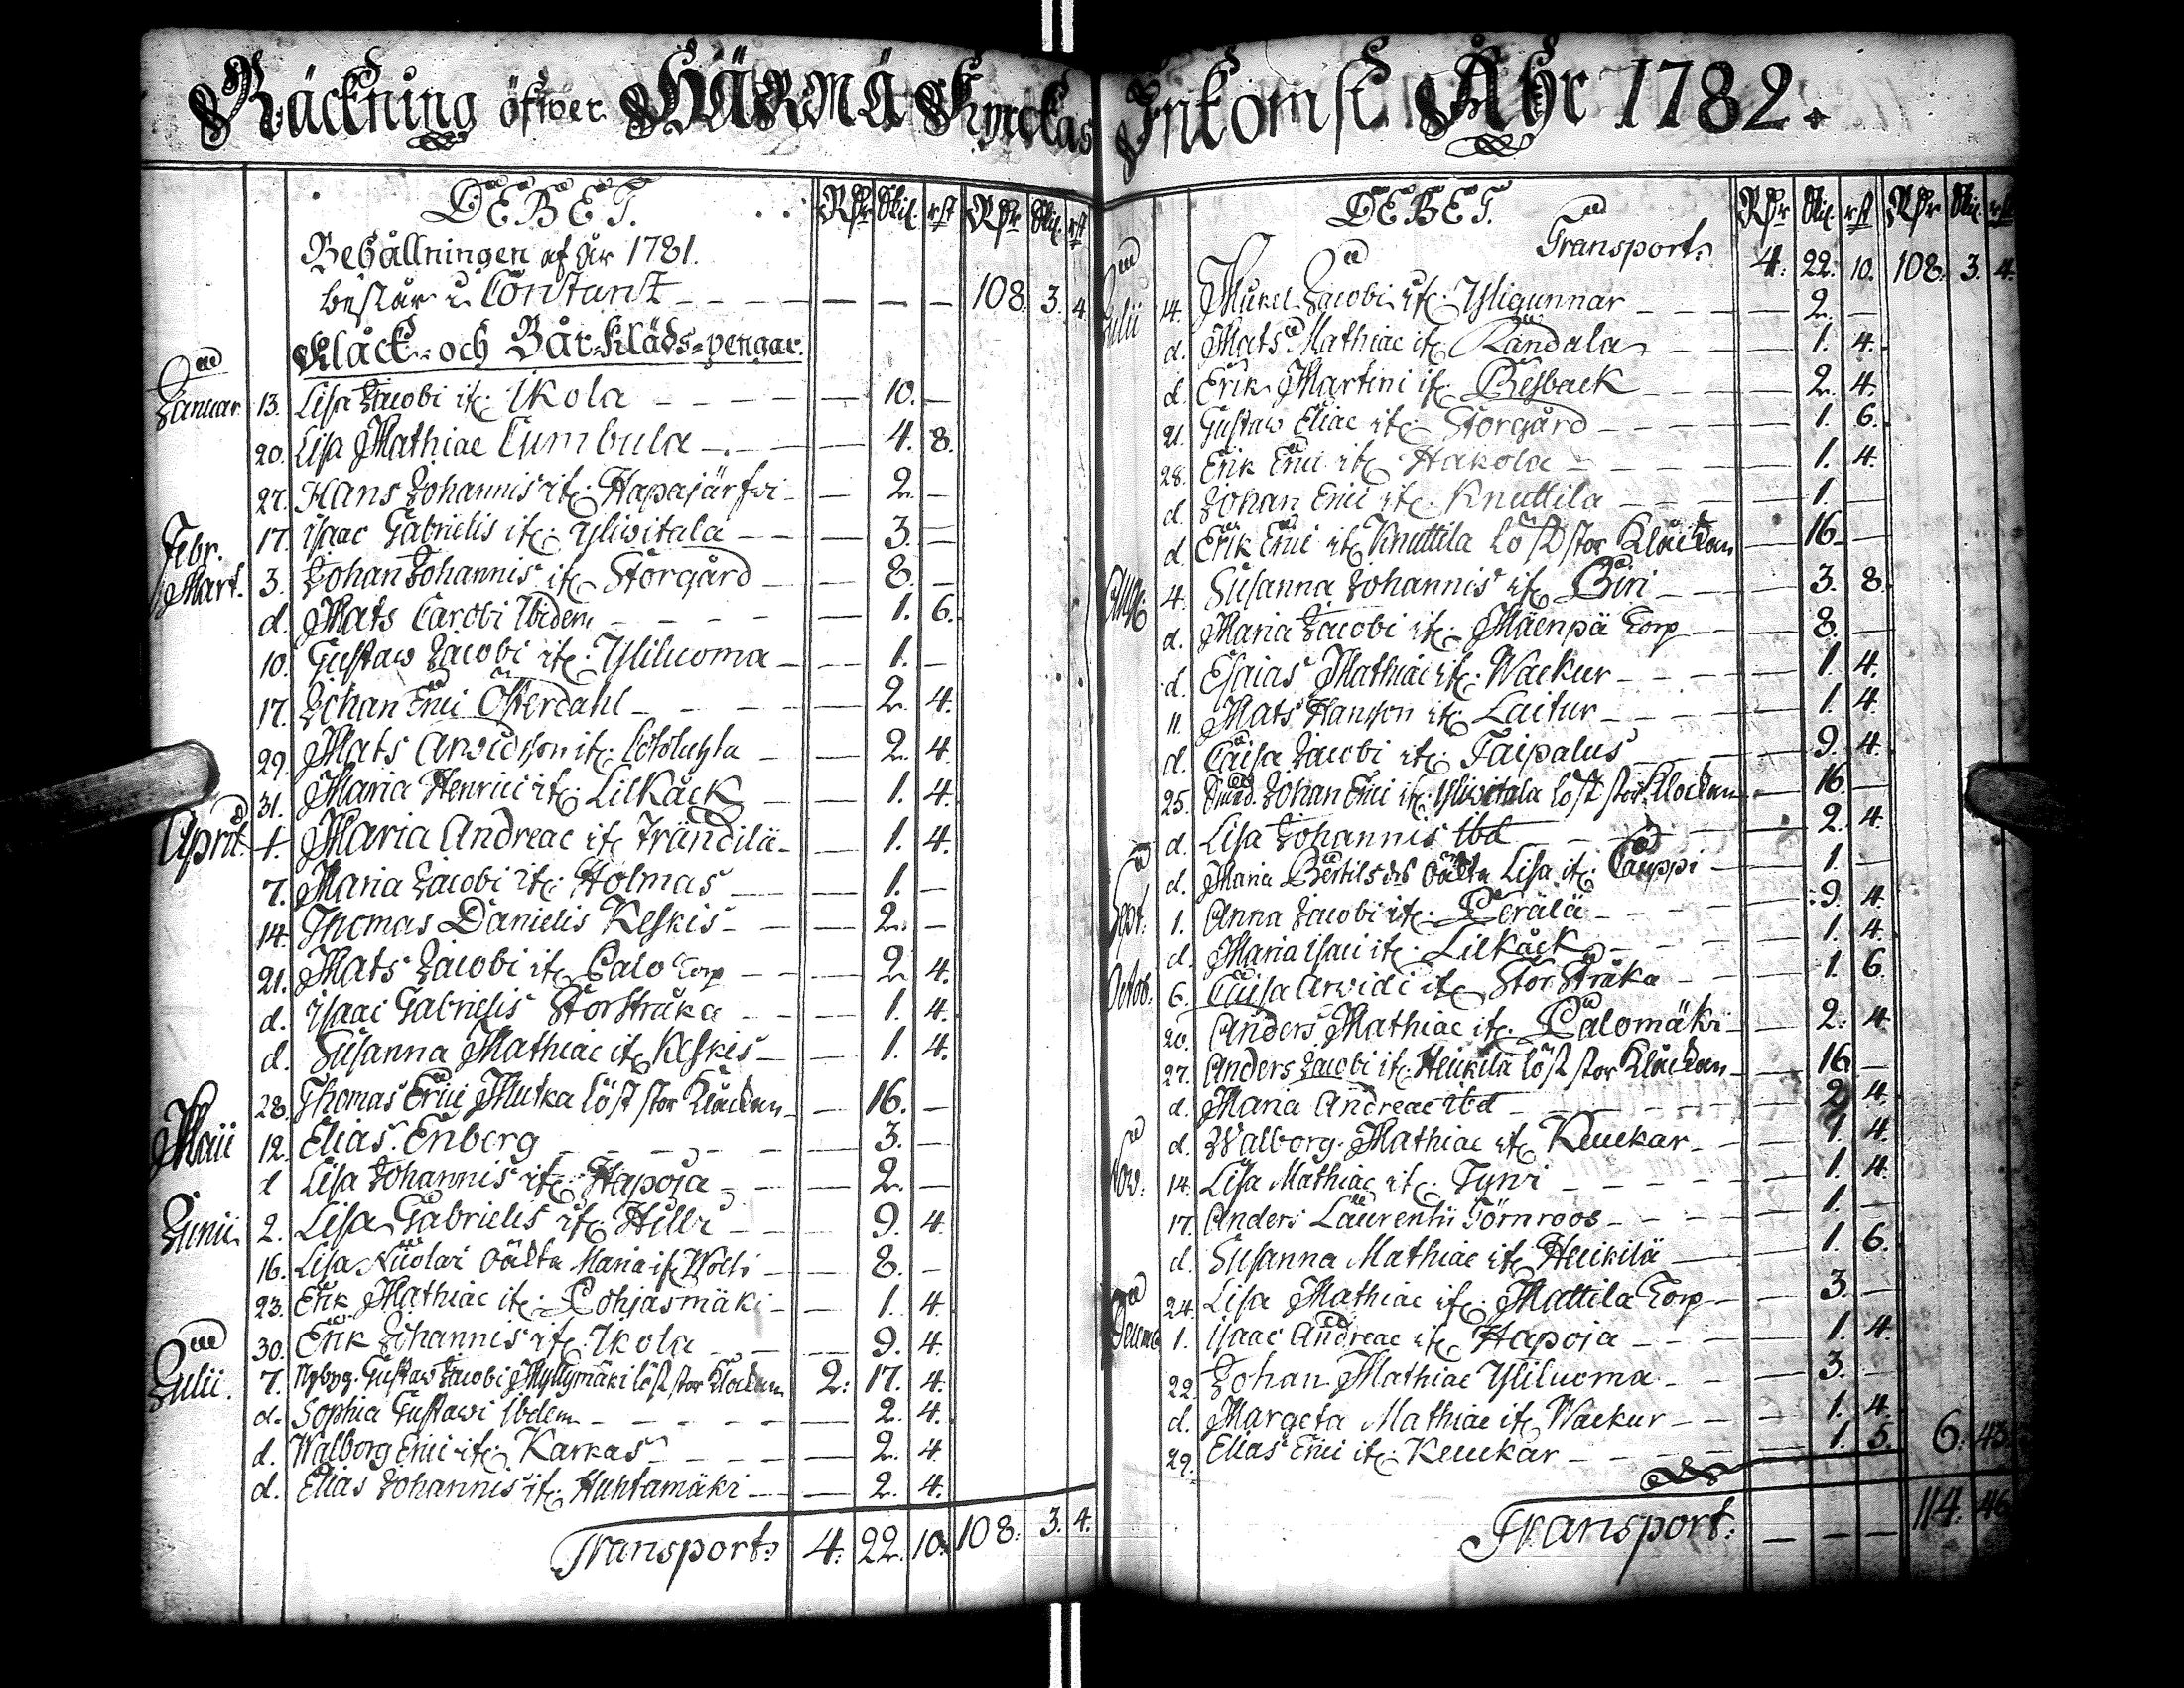 Räckning öfwer HÄRMÄ Kyrckas Inkomst Åhr 1782.
DEBET. Rdr Skil. rst Rdr Skil. rst
Behållningen af år 1781.
består i Contant — — — 108. 3. 4
Klåck- och Bår-Kläds-pengar.
Januar. 13. Lisa Jacobi it: Ikola — 10. —
20. Lisa Mathiae Cumbula — 4. 8.
27. Hans Johannis it: Hapajärfwi — 2. —
Febr. 17. Isaac Gabrielis it: Yliwitala — 3. —
Mart. 3. Johan Johannis it: Storgård — 8. —
d. Mats Caroli Ibidem — 1. 6.
10. Gustaw Jacobi it: Yliluoma — 1. —
17. Johan Erici Österdahl — 2. 4.
29. Mats Arwidsson it: — 2. 4.
31. Maria Henrici it: Lilkåck — 1. 4.
April. 1. Maria Andreae it: Trändilä — 1. 4.
7. Maria Jacobi it: Holmas — 1. —
14. Thomas Danielis Keskis — 2. —
21. Mats Jacobi it: Palo Torp — 2. 4.
d. Isaac Gabrielis Storstråka — 1. 4.
d. Susanna Mathiae it: Keskis — 1. 4.
28. Thomas Erici Mutka löst stor Klåckan — 16. —
Maii 12. Elias Enberg — 3. —
d Lisa Johannis it: Hapoja — 2. —
Junii 2. Lisa Gabrielis it: Hilli — 9. 4.
16. Lisa Nicolai oäkta Maria it: Wolti — 8. —
23. Erik Mathiae it: Pohjasmäki — 1. 4.
30. Erik Johannis it: Ikola — 9. 4.
Julii. 7. Nybyg. Gustaw Jacobi Myllymäki löst stor Klockan 2: 17. 4.
d. Sophia Gustawi Ibidem — 2. 4.
d. Walborg Erici it: Karkas — 2. 4.
d. Elias Johannis it: Huhtamäki — 2. 4.
Transport: 4: 22. 10. 108: 3. 4.
DEBET. Rdr Skil. rst Rdr Skil. rst
Transport: 4: 22. 10. 108: 3. 4.
Julii 14. Mickel Jacobi it: Yligunnar — 2. —
d. Mats Mathiae it: Randala — 1. 4.
d. Erik Martini it: Besback — 2. 4.
21. Gustaw Eliae it: Storgård — 1. 6.
28. Erik Erici it: Hakola — 1. 4.
d. Johan Erici it: Knuttila — 1. —
d. Erik Erici it: Knuttila löst stor Klåckan — 16. —
Aug: 4. Susanna Johannis it: Piri — 3. 8.
d. Maria Jacobi it: Mäenpä Torp — 8. —
d. Esaias Mathiae it: Wackur — 1. 4.
11. Mats Hansson it: Laitur — 1. 4.
d. Caisa Jacobi it: Taipalus — 9. 4.
25. Johan Erici it: Yliwitala löst stor Klockan — 16. —
d. Lisa Johannis Ibd — 2. 4.
d. Maria Bertilsds oäkta Lisa it: Cauppi — 1. —
Sept: 1. Anna Jacobi it: Perälä — 9. 4.
d. Maria Isaci it: Lilkåck — 1. 4.
Octob: 6. Caisa Arwidi it: Stor Stråka — 1. 6.
20. Anders Mathiae it: Palomäki — 2. 4
27. Anders Jacobi it: Heickilä löst stor Klåckan — 16 —
d. Maria Andreae ibd — 2 4.
d. Walborg Mathiae it: Keuckar — 1. 4.
Nov: 14. Lisa Mathiae it: Tyni — 1. 4.
17. Anders Laurentii Törnroos — 1. —
d. Susanna Mathiae it: Heickilä — 1. 6.
24. Lisa Mathiae it: Mattila Torp — 3. —
Decemb 1. Isaac Andreae it: Hapoja — 1. 4.
22. Johan Mathiae Yliluoma — 3. —
d. Margeta Mathiae it: Wackur — 1. 4.
29. Elias Erici it: Keuckar — 1. 5. 6: 43.
Transport: — — — 114. 46